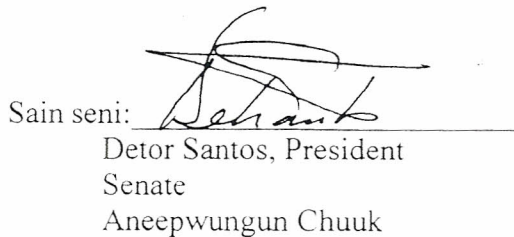 Sain seni:
Detor Santos, President
Senate
Aneepwungun Chuuk